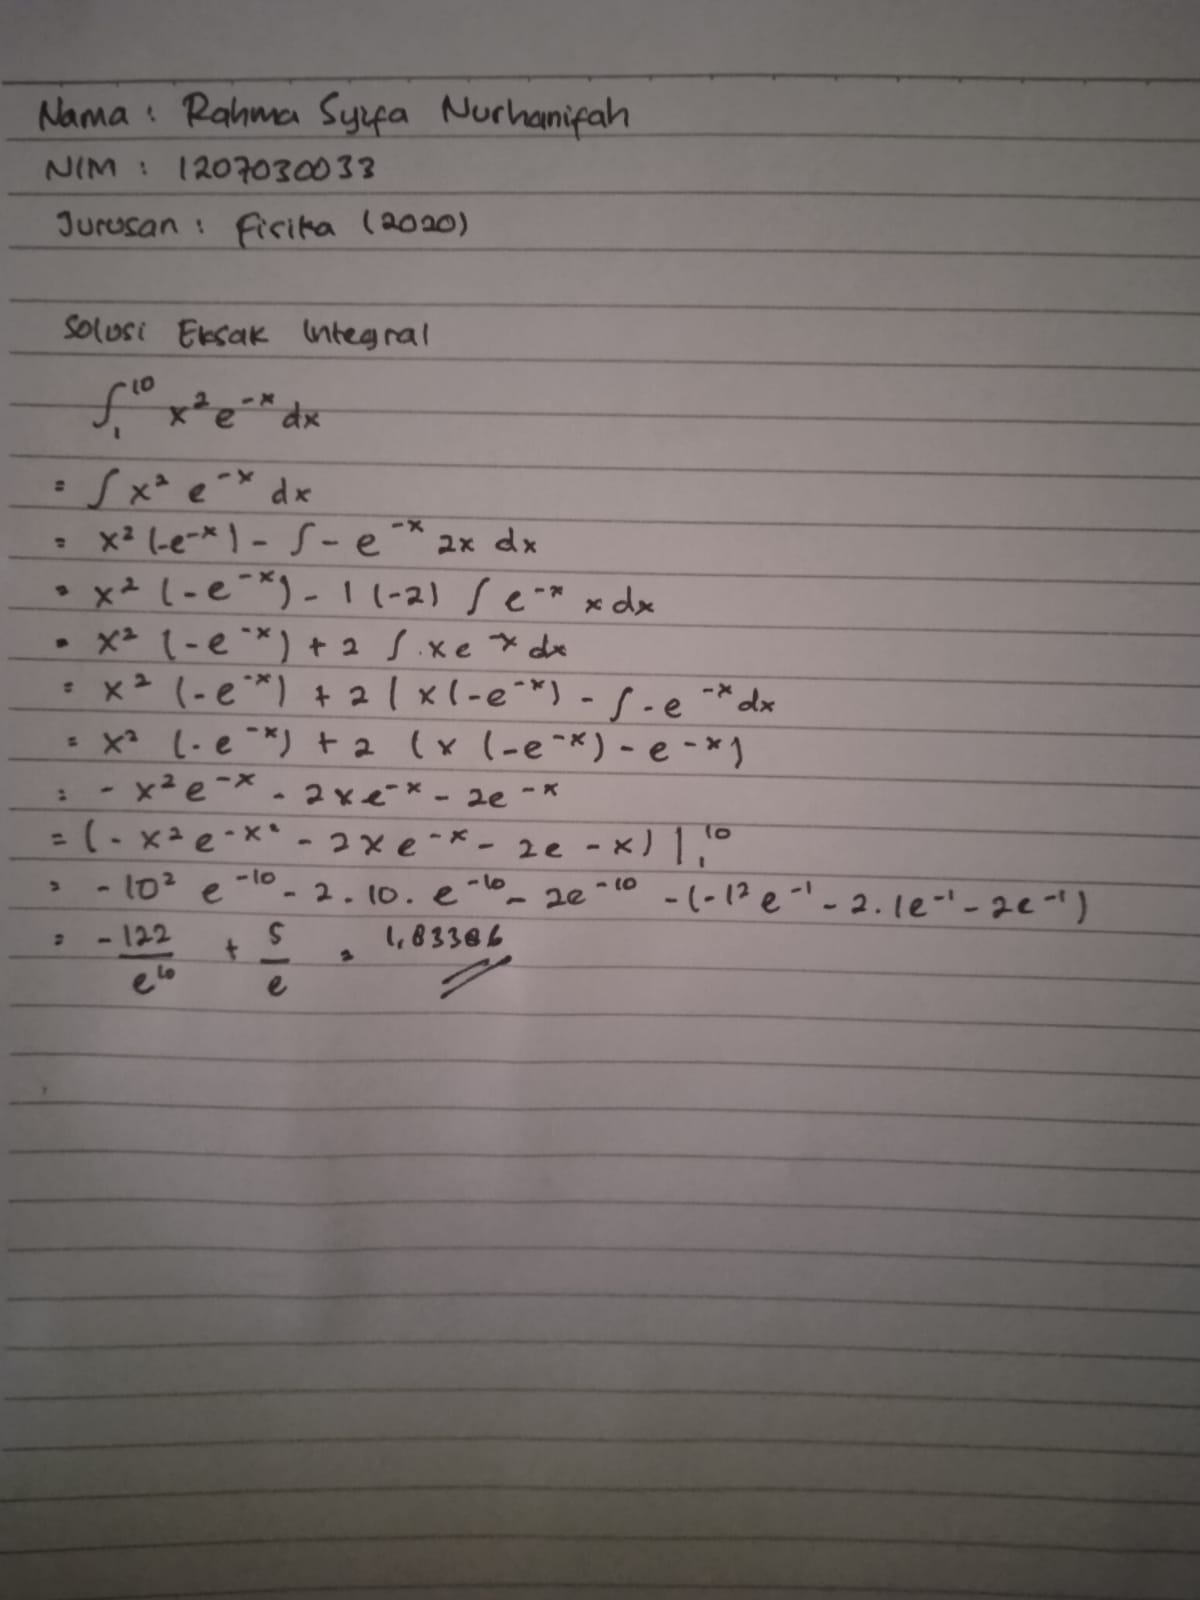 Nama : Rahma Syifa Nurhanifah
NIM : 1207030033
Jurusan : Fisika (2020)
Solusi Eksak Integral
∫₁¹⁰ x² e^-x dx
= ∫ x² e^-x dx
= x² (-e^-x) - ∫ - e^-x 2x dx
= x² (-e^-x) - 1 (-2) ∫ e^-x x dx
= x² (-e^-x) + 2 ∫ x e^-x dx
= x² (-e^-x) + 2 ( x (-e^-x) - ∫ - e^-x dx
= x² (-e^-x) + 2 (x (-e^-x) - e^-x)
= - x² e^-x - 2xe^-x - 2e^-x
= (- x² e^-x - 2xe^-x - 2e-x) |₁¹⁰
= - 10² e^-10 - 2 . 10 . e^-10 - 2e^-10 - (-1² e^-1 - 2 . 1e^-1 - 2e^-1)
= -122/e^10 + 5/e = 1,83386